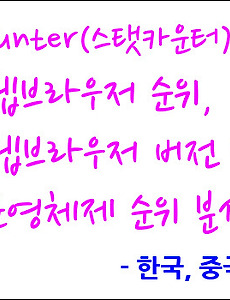 unter(스탯카운터)
웹브라우저 순위,
웹브라우저 버전
운영체제 순위 분석
- 한국, 중국